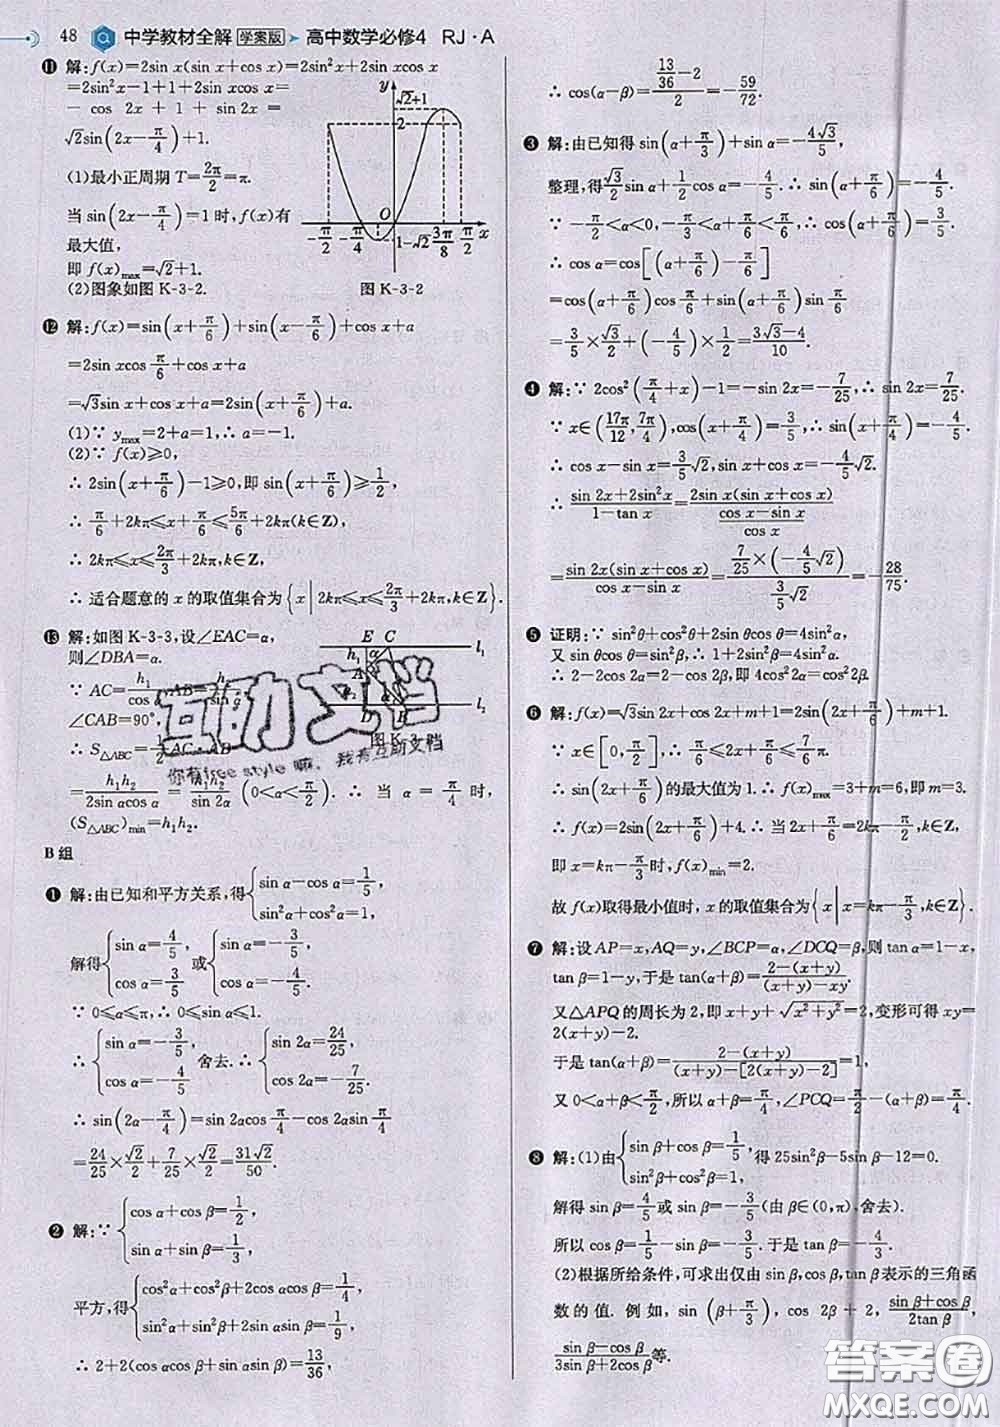 48 中学教材全解 学案版 高中数学必修4 RJ·A
⓫ 解:f(x)=2sin x(sin x+cos x)=2sin²x+2sin xcos x
=2sin²x-1+1+2sin xcos x=
- cos 2x + 1 + sin 2x =
√2sin(2x-π/4)+1.
(1)最小正周期 T=2π/2=π.
当 sin(2x-π/4)=1 时,f(x)有
最大值,
即 f(x)max=√2+1.
(2)图象如图 K-3-2.
y
√2+1
2
-π/2 -π/4 O 1-√2 3π/8 π/2 x
图 K-3-2
⓬ 解:f(x)=sin(x+π/6)+sin(x-π/6)+cos x+a
=2sin xcos π/6+cos x+a
=√3sin x+cos x+a=2sin(x+π/6)+a.
(1)∵ ymax=2+a=1,∴ a=-1.
(2)∵ f(x)≥0,
∴ 2sin(x+π/6)-1≥0,即 sin(x+π/6)≥1/2,
∴ π/6+2kπ≤x+π/6≤5π/6+2kπ(k∈Z),
∴ 2kπ≤x≤2π/3+2kπ,k∈Z,
∴ 适合题意的 x 的取值集合为{x|2kπ≤x≤2π/3+2kπ,k∈Z}.
⓭ 解:如图 K-3-3,设∠EAC=α,
则∠DBA=α.
∵ AC=h₁/cos
∠CAB=90°,
∴ S△ABC=
=h₁h₂/2sin αcos α=h₁h₂/sin 2α(0<α<π/2). ∴ 当 α=π/4 时,
(S△ABC)min=h₁h₂.
E C l₁
h₁
A
D B l₂
图 K-3-
互助文档
你有free style嘛, 我有互助文档
B 组
❶ 解:由已知和平方关系,得{sin α-cos α=1/5, sin²α+cos²α=1,
解得{sin α=4/5 cos α=3/5 或{sin α=-3/5, cos α=-4/5.
∵ 0≤α≤π,∴ 0≤sin α≤1.
∴ {sin α=-3/5, cos α=-4/5 舍去. ∴ {sin 2α=24/25, cos 2α=-7/25.
∴ sin(2α-π/4)=sin 2αcos π/4-cos 2αsin π/4
=24/25×√2/2+7/25×√2/2=31√2/50.
❷ 解:∵ {cos α+cos β=1/2, sin α+sin β=1/3,
平方,得{cos²α+cos²β+2cos αcos β=1/4, sin²α+sin²β+2sin αsin β=1/9,
∴ 2+2(cos αcos β+sin αsin β)=13/36,
∴ cos(α-β)=(13/36-2)/2=-59/72.
❸ 解:由已知得 sin(α+π/3)+sin α=-4√3/5,
整理,得√3/2sin α+1/2cos α=-4/5.∴ sin(α+π/6)=-4/5.
∵ -π/2<α<0,-π/3<α+π/6<π/6,∴ cos(α+π/6)=3/5.
∴ cos α=cos[(α+π/6)-π/6]
=cos(α+π/6)cos π/6+sin(α+π/6)sin π/6
=3/5×√3/2+(-4/5)×1/2=(3√3-4)/10.
❹ 解:∵ 2cos²(π/4+x)-1=-sin 2x=-7/25,∴ sin 2x=7/25.
∵ x∈(17π/12,7π/4),cos(x+π/4)=3/5,∴ sin(x+π/4)=-4/5.
∴ cos x-sin x=3/5√2,sin x+cos x=-4/5√2.
∴ (sin 2x+2sin²x)/(1-tan x)=2sin x(sin x+cos x)/((cos x-sin x)/cos x)
=sin 2x(sin x+cos x)/(cos x-sin x)=(7/25×(-4/5√2))/(3/5√2)=-28/75.
❺ 证明:∵ sin²θ+cos²θ+2sin θcos θ=4sin²α,
又 sin θcos θ=sin²β,∴ 1+2sin²β=4sin²α.
∴ 2-2cos 2α=2-cos 2β,即 4cos²2α=cos²2β.
❻ 解:f(x)=√3sin 2x+cos 2x+m+1=2sin(2x+π/6)+m+1.
∵ x∈[0,π/2],∴ π/6≤2x+π/6≤7π/6.
∴ sin(2x+π/6)的最大值为 1.∴ f(x)max=3+m=6,即 m=3.
∴ f(x)=2sin(2x+π/6)+4.∴ 当 2x+π/6=2kπ-π/2,k∈Z,
即 x=kπ-π/3时,f(x)min=2.
故 f(x)取得最小值时,x 的取值集合为{x|x=kπ-π/3,k∈Z}.
❼ 解:设 AP=x,AQ=y,∠BCP=α,∠DCQ=β,则 tan α=1-x,
tan β=1-y,于是 tan(α+β)=(2-(x+y))/((x+y)-xy).
又△APQ 的周长为 2,即 x+y+√(x²+y²)=2,变形可得 xy=
2(x+y)-2.
于是 tan(α+β)=(2-(x+y))/((x+y)-[2(x+y)-2])=1,
又 0<α+β<π/2,所以 α+β=π/4,∠PCQ=π/2-(α+β)=π/4.
❽ 解:(1)由{sin β+cos β=1/5, sin²β+cos²β=1, 得 25sin²β-5sin β-12=0.
解得 sin β=4/5或 sin β=-3/5(由 β∈(0,π),舍去).
所以 cos β=1/5-sin β=-3/5.于是 tan β=-4/3.
(2)根据所给条件,可求出仅由 sin β,cos β,tan β 表示的三角函
数的值. 例如,sin(β+π/3),cos 2β+2,(sin β+cos β)/2tan β,
(sin β-cos β)/(3sin β+2cos β)等.
答案圈
MXQE.COM